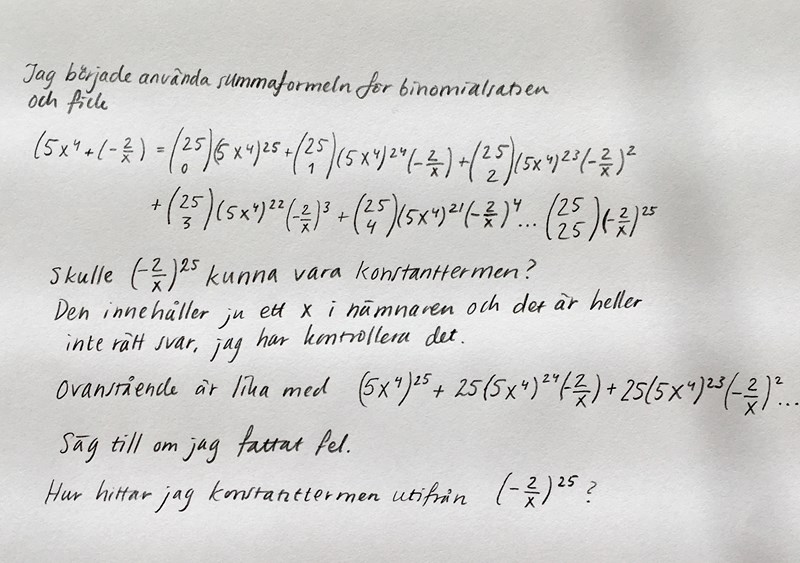 Jag började använda summaformeln för binomialsatsen
och fick
(5x⁴+(-2/x) = (25 0)(5x⁴)²⁵+(25 1)(5x⁴)²⁴(-2/x)+(25 2)(5x⁴)²³(-2/x)²
+(25 3)(5x⁴)²²(-2/x)³+(25 4)(5x⁴)²¹(-2/x)⁴...(25 25)(-2/x)²⁵
Skulle (-2/x)²⁵ kunna vara konstanttermen?
Den innehåller ju ett x i nämnaren och det är heller
inte rätt svar, jag har kontrollera det.
Ovanstående är lika med (5x⁴)²⁵+25(5x⁴)²⁴(-2/x)+25(5x⁴)²³(-2/x)²...
Säg till om jag fattat fel.
Hur hittar jag konstanttermen utifrån (-2/x)²⁵?